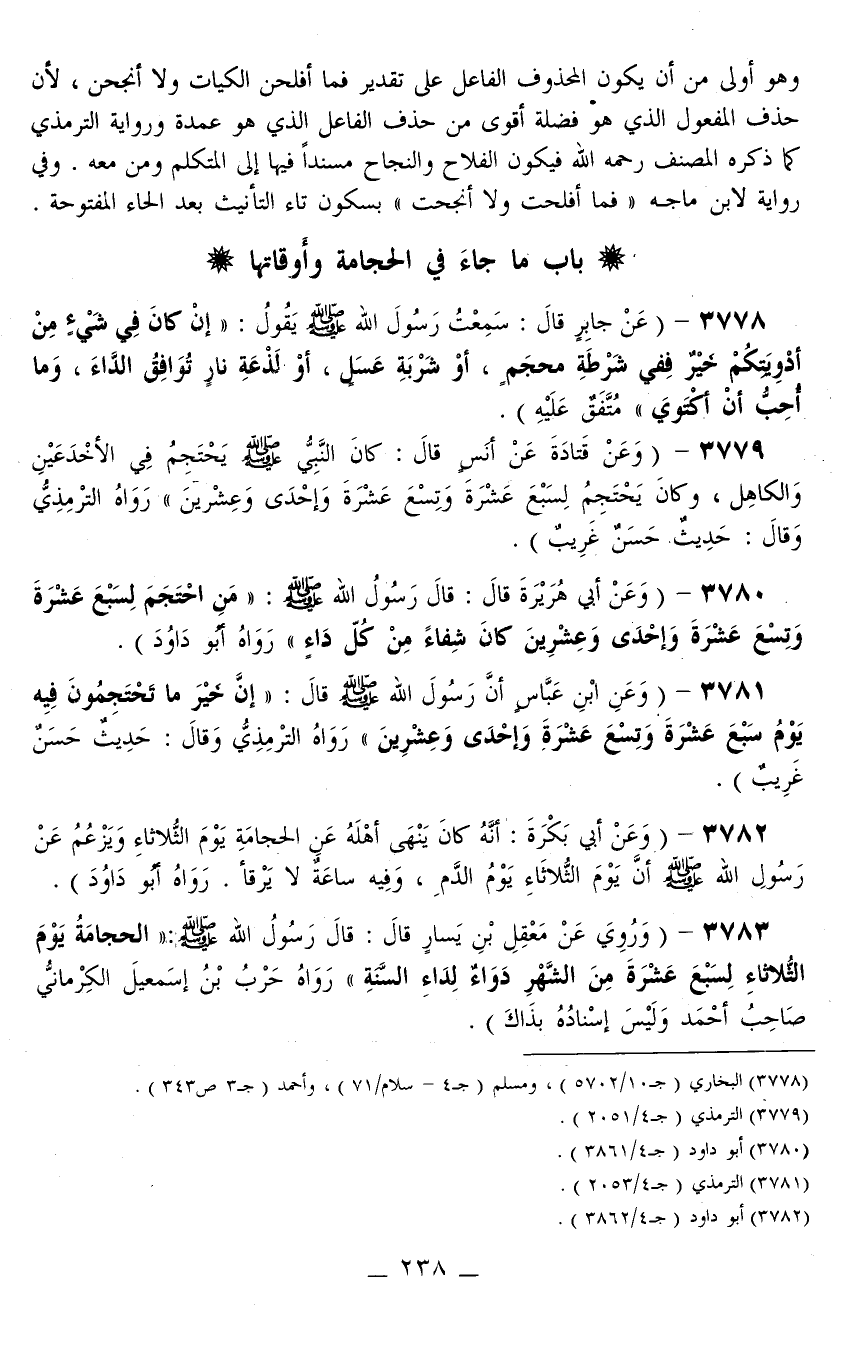 وهو أولى من أن يكون المحذوف الفاعل على تقدير فما أفلحن الكيات ولا أنجحن ، لأن
حذف المفعول الذي هو فضلة أقوى من حذف الفاعل الذي هو عمدة ورواية الترمذي
كما ذكره المصنف رحمه الله فيكون الفلاح والنجاح مسنداً فيها إلى المتكلم ومن معه . وفي
رواية لابن ماجه « فما أفلحت ولا أنجحت » بسكون تاء التأنيث بعد الحاء المفتوحة .
❋ باب ما جاءَ في الحجامة وأَوقاتها ❋
٣٧٧٨ – ( عَنْ جابِرٍ قالَ : سَمِعْتُ رَسُولَ الله ﷺ يَقُولُ : « إنْ كانَ فِي شَيْءٍ مِنْ
أدْوِيَتِكُمْ خَيْرٌ فَفي شَرْطَةِ محجَمٍ ، أوْ شَرْبَةِ عَسَلٍ ، أوْ لَذْعَةِ نارٍ تُوَافِقُ الدَّاءَ ، وَما
أُحِبُّ أنْ أكْتَوِيَ » مُتَّفَقٌ عَلَيْهِ ) .
٣٧٧٩ – ( وَعَنْ قَتادَةَ عَنْ أنَسٍ قالَ : كانَ النَّبِيُّ ﷺ يَحْتَجِمُ فِي الأخْدَعَيْنِ
وَالكاهِلِ ، وكانَ يَحْتَجِمُ لِسَبْعَ عَشْرَةَ وَتِسْعَ عَشْرَةَ وَإحْدَى وَعِشْرِينَ » رَوَاهُ التِّرْمِذِيُّ
وَقالَ : حَدِيثٌ حَسَنٌ غَرِيبٌ ) .
٣٧٨٠ – ( وَعَنْ أبي هُرَيْرَةَ قالَ : قالَ رَسُولُ الله ﷺ : « مَنِ احْتَجَمَ لِسَبْعَ عَشْرَةَ
وَتِسْعَ عَشْرَةَ وَإحْدَى وَعِشْرِينَ كانَ شِفاءً مِنْ كُلّ دَاءٍ » رَوَاهُ أبُو دَاوُدَ ) .
٣٧٨١ – ( وَعَنِ ابْنِ عَبَّاسٍ أنَّ رَسُولَ الله ﷺ قالَ : « إنَّ خَيْرَ ما تَحْتَجِمُونَ فِيه
يَوْمُ سَبْعَ عَشْرَةَ وَتِسْعَ عَشْرَةَ وَإحْدَى وَعِشْرِينَ » رَوَاهُ التِّرْمِذِيُّ وَقالَ : حَدِيثٌ حَسَنٌ
غَرِيبٌ ) .
٣٧٨٢ – ( وَعَنْ أبي بَكْرَةَ : أنَّهُ كانَ يَنْهَى أهْلَهُ عَنِ الحجامَةِ يَوْمَ الثُّلاثاءِ وَيَزْعُمُ عَنْ
رَسُولِ الله ﷺ أنَّ يَوْمَ الثُّلاثَاءِ يَوْمُ الدَّمِ ، وَفِيه ساعَةٌ لا يَرْقأ . رَوَاهُ أبُو دَاوُدَ ) .
٣٧٨٣ – ( وَرُوِيَ عَنْ مَعْقِلِ بْنِ يَسارٍ قالَ : قالَ رَسُولُ الله ﷺ:« الحجامَةُ يَوْمَ
الثُّلاثاءِ لِسَبْعَ عَشْرَةَ مِنَ الشَّهْرِ دَوَاءٌ لِدَاءِ السَّنَةِ » رَوَاهُ حَرْبُ بْنُ إسمَعيلَ الكِرْمانيُّ
صَاحِبُ أحْمَد وَلَيْسَ إسْنادُهُ بذَاكَ ) .
(٣٧٧٨) البخاري ( جـ١٠/٥٧٠٢ ) ، ومسلم ( جـ٤ – سلام/٧١ ) ، وأحمد ( جـ٣ ص٣٤٣ ) .
(٣٧٧٩) الترمذي ( جـ٤/٢٠٥١ ) .
(٣٧٨٠) أبو داود ( جـ٤/٣٨٦١ ) .
(٣٧٨١) الترمذي ( جـ٤/٢٠٥٣ ) .
(٣٧٨٢) أبو داود ( جـ٤/٣٨٦٢ ) .
ــ ٢٣٨ ــ